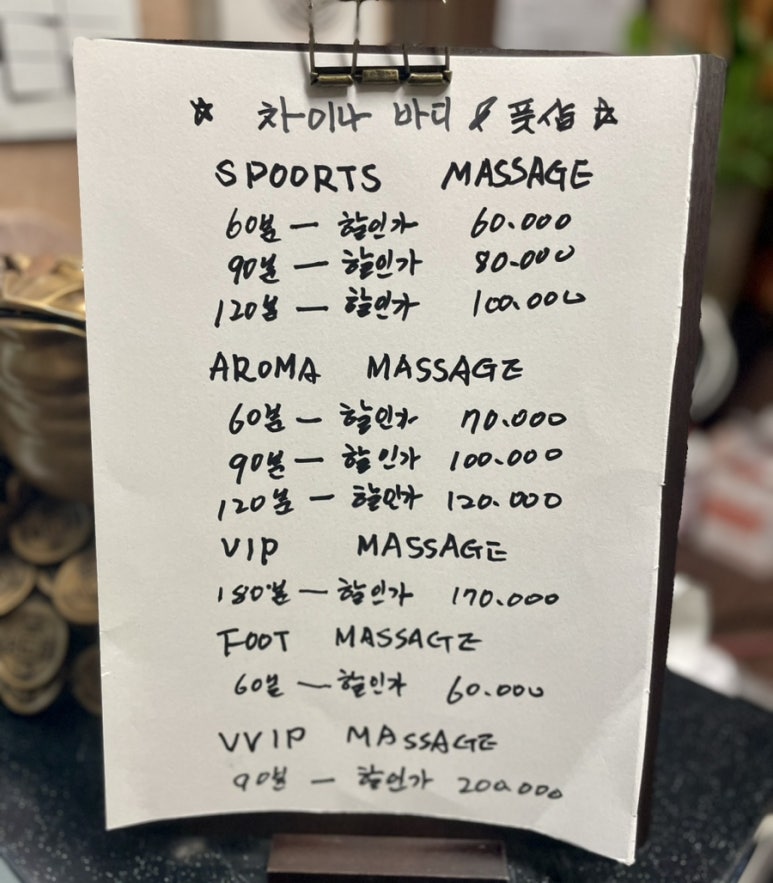 ☆ 차이나 바디 & 풋샵 ☆
SPOORTS MASSAGE
60분 — 할인가 60.000
90분 — 할인가 80.000
120분 — 할인가 100.000
AROMA MASSAGE
60분 — 할인가 70.000
90분 — 할인가 100.000
120분 — 할인가 120.000
VIP MASSAGE
180분 — 할인가 170.000
FOOT MASSAGE
60분 — 할인가 60.000
VVIP MASSAGE
90분 — 할인가 200.000